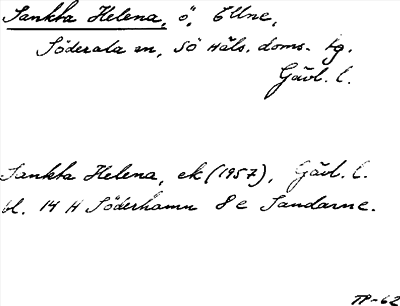 Sankta Helena, ö, Ellne,
Söderala sn, Sö Häls. doms. tg.
Gävl. l.
Sankta Helena, ek (1957), Gävl. l.
bl. 14 H Söderhamn 8 e Sandarne.
TP-62